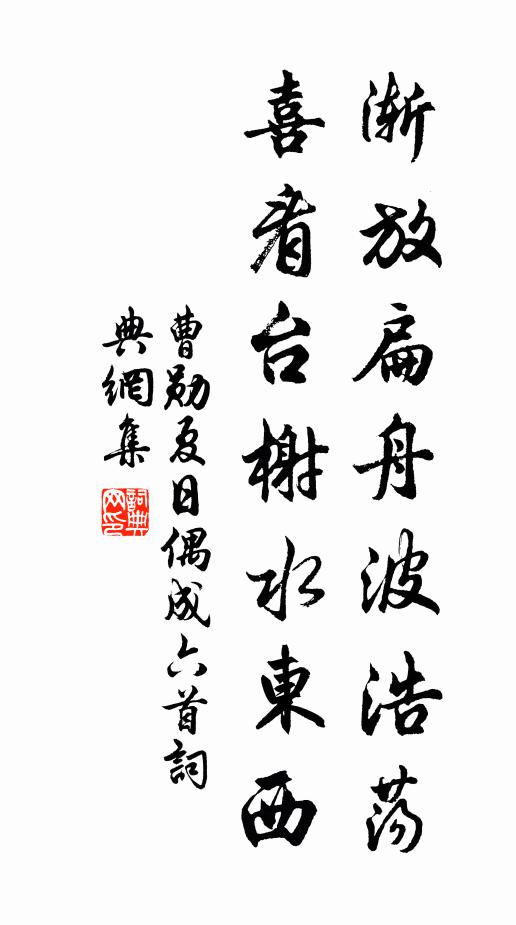 漸放扁舟波浩蕩
喜看台榭水東西
曹勛夏日偶成六首詞
典網集
詞典網印